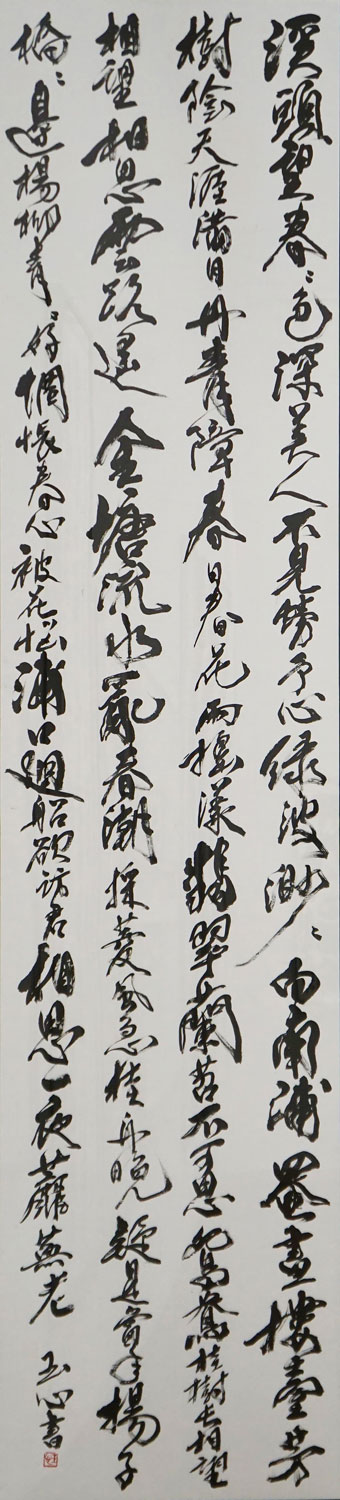 溪頭望春〻色深美人不見勞予心綠波渺〻向南浦罨畫樓臺芳
樹陰天涯滿目丹青障春日春花兩搖漾翡翠蘭苕不可思鴛鴦桂樹長相望
相望相思雲路遙金塘流水亂春潮採菱風急桂舟晚疑是當年楊子
橋〻邊楊柳青〻好惆悵春心被花惱浦口迴船欲訪君相思一夜蘼蕪老 玉心書